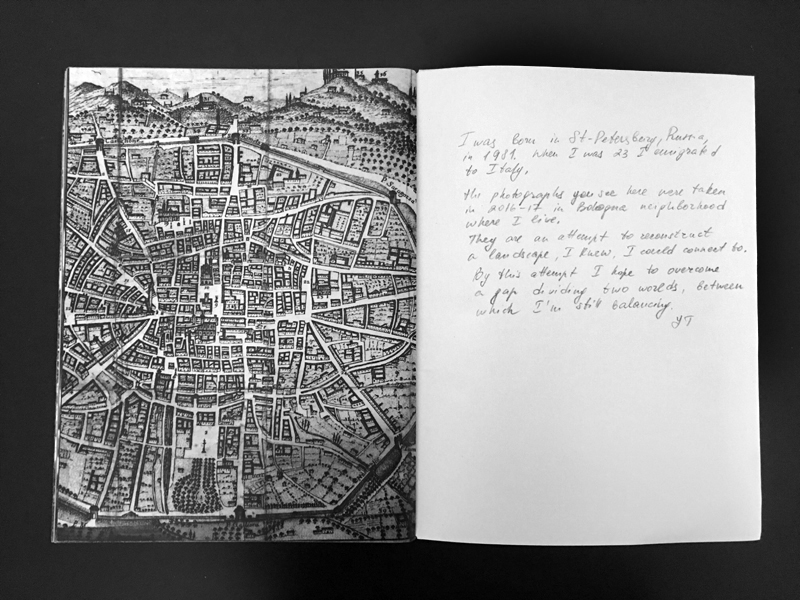 I was born in St-Petersburg, Russia,
in 1981. When I was 23 I emigrated
to Italy.
The photographs you see here were taken
in 2016-17 in Bologna neighborhood
where I live.
They are an attempt to reconstruct
a landscape, I knew, I could connect to.
By this attempt I hope to overcome
a gap dividing two worlds, between
which I'm still balancing.
YT